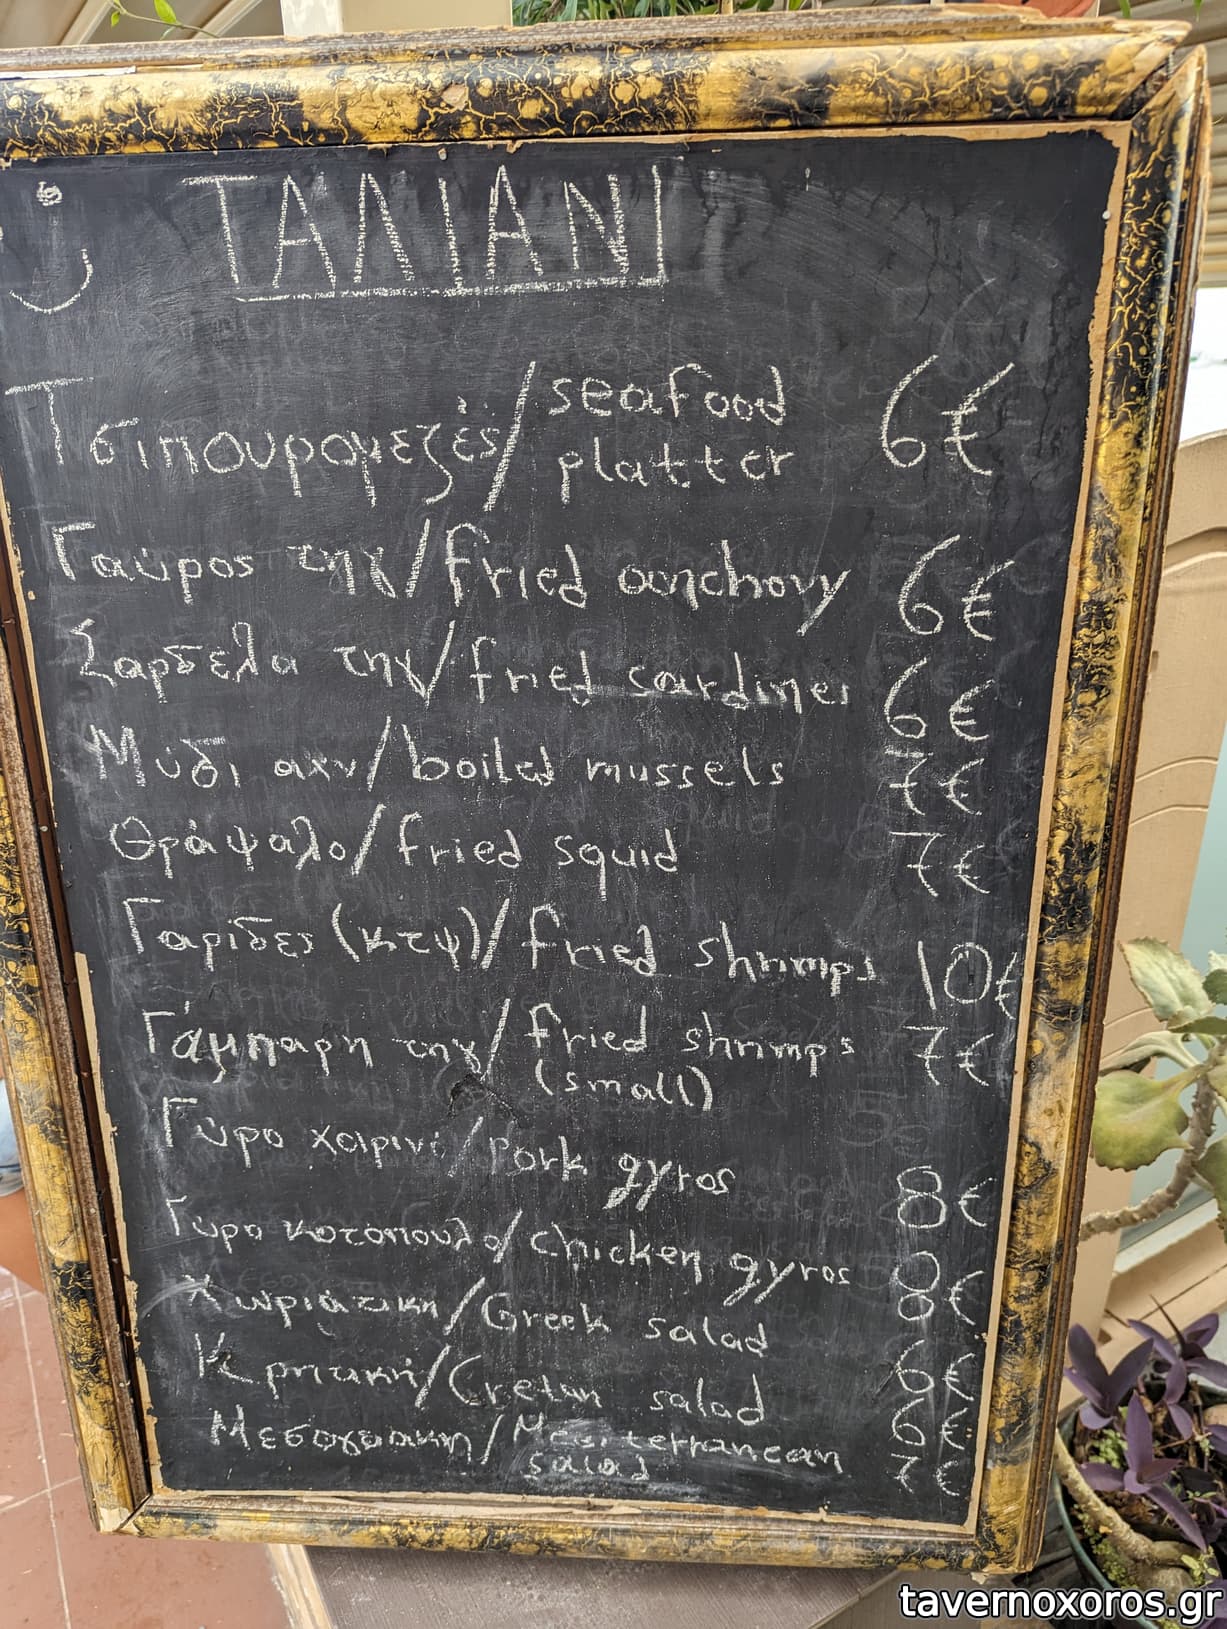 ΤΑΛΙΑΝΙ
Τσιπουρομεζές/seafood platter 6€
Γαύρος τηγ/fried anchovy 6€
Σαρδελα τηγ/fried sardines 6€
Μύδι αχν/boiled mussels 7€
Θράψαλο/fried squid 7€
Γαριδες (κτψ)/fried shrimps 10€
Γάμπαρη τηγ/fried shrimps (small) 7€
Γυρο χοιρινό/Pork gyros 8€
Γυρο κοτοπουλο/chicken gyros 8€
Χωριάτικη/Greek salad 6€
Κρητική/Cretan salad 6€
Μεσογειακη/Mediterranean salad 7€
tavernoxoros.gr